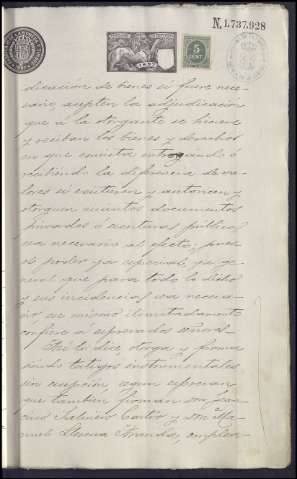 N. 1.737.928
5
CENT
dicación de bienes si fuere nece-
sario, acepten la adjudicación
que á la otorgante se hiciere
y reciban los bienes y derechos
en que consista entregando ó
recibiendo la diferencia de va-
lores si existieren y autoricen y
otorguen cuantos documentos
privados ó escrituras públicas
sea necesario al efecto, pues
el poder por especial, ya ge-
neral que para todo lo dicho
y sus incidencias sea necesa-
rio ese mismo ilimitadamente
confiere á expresados señores.
Así lo dice, otorga y firma
siendo testigos instrumentales
sin excepción, según expresan
que también firman don Fran-
cisco Galindo Castro y don Ma-
nuel Llorens Aranda, emplea-